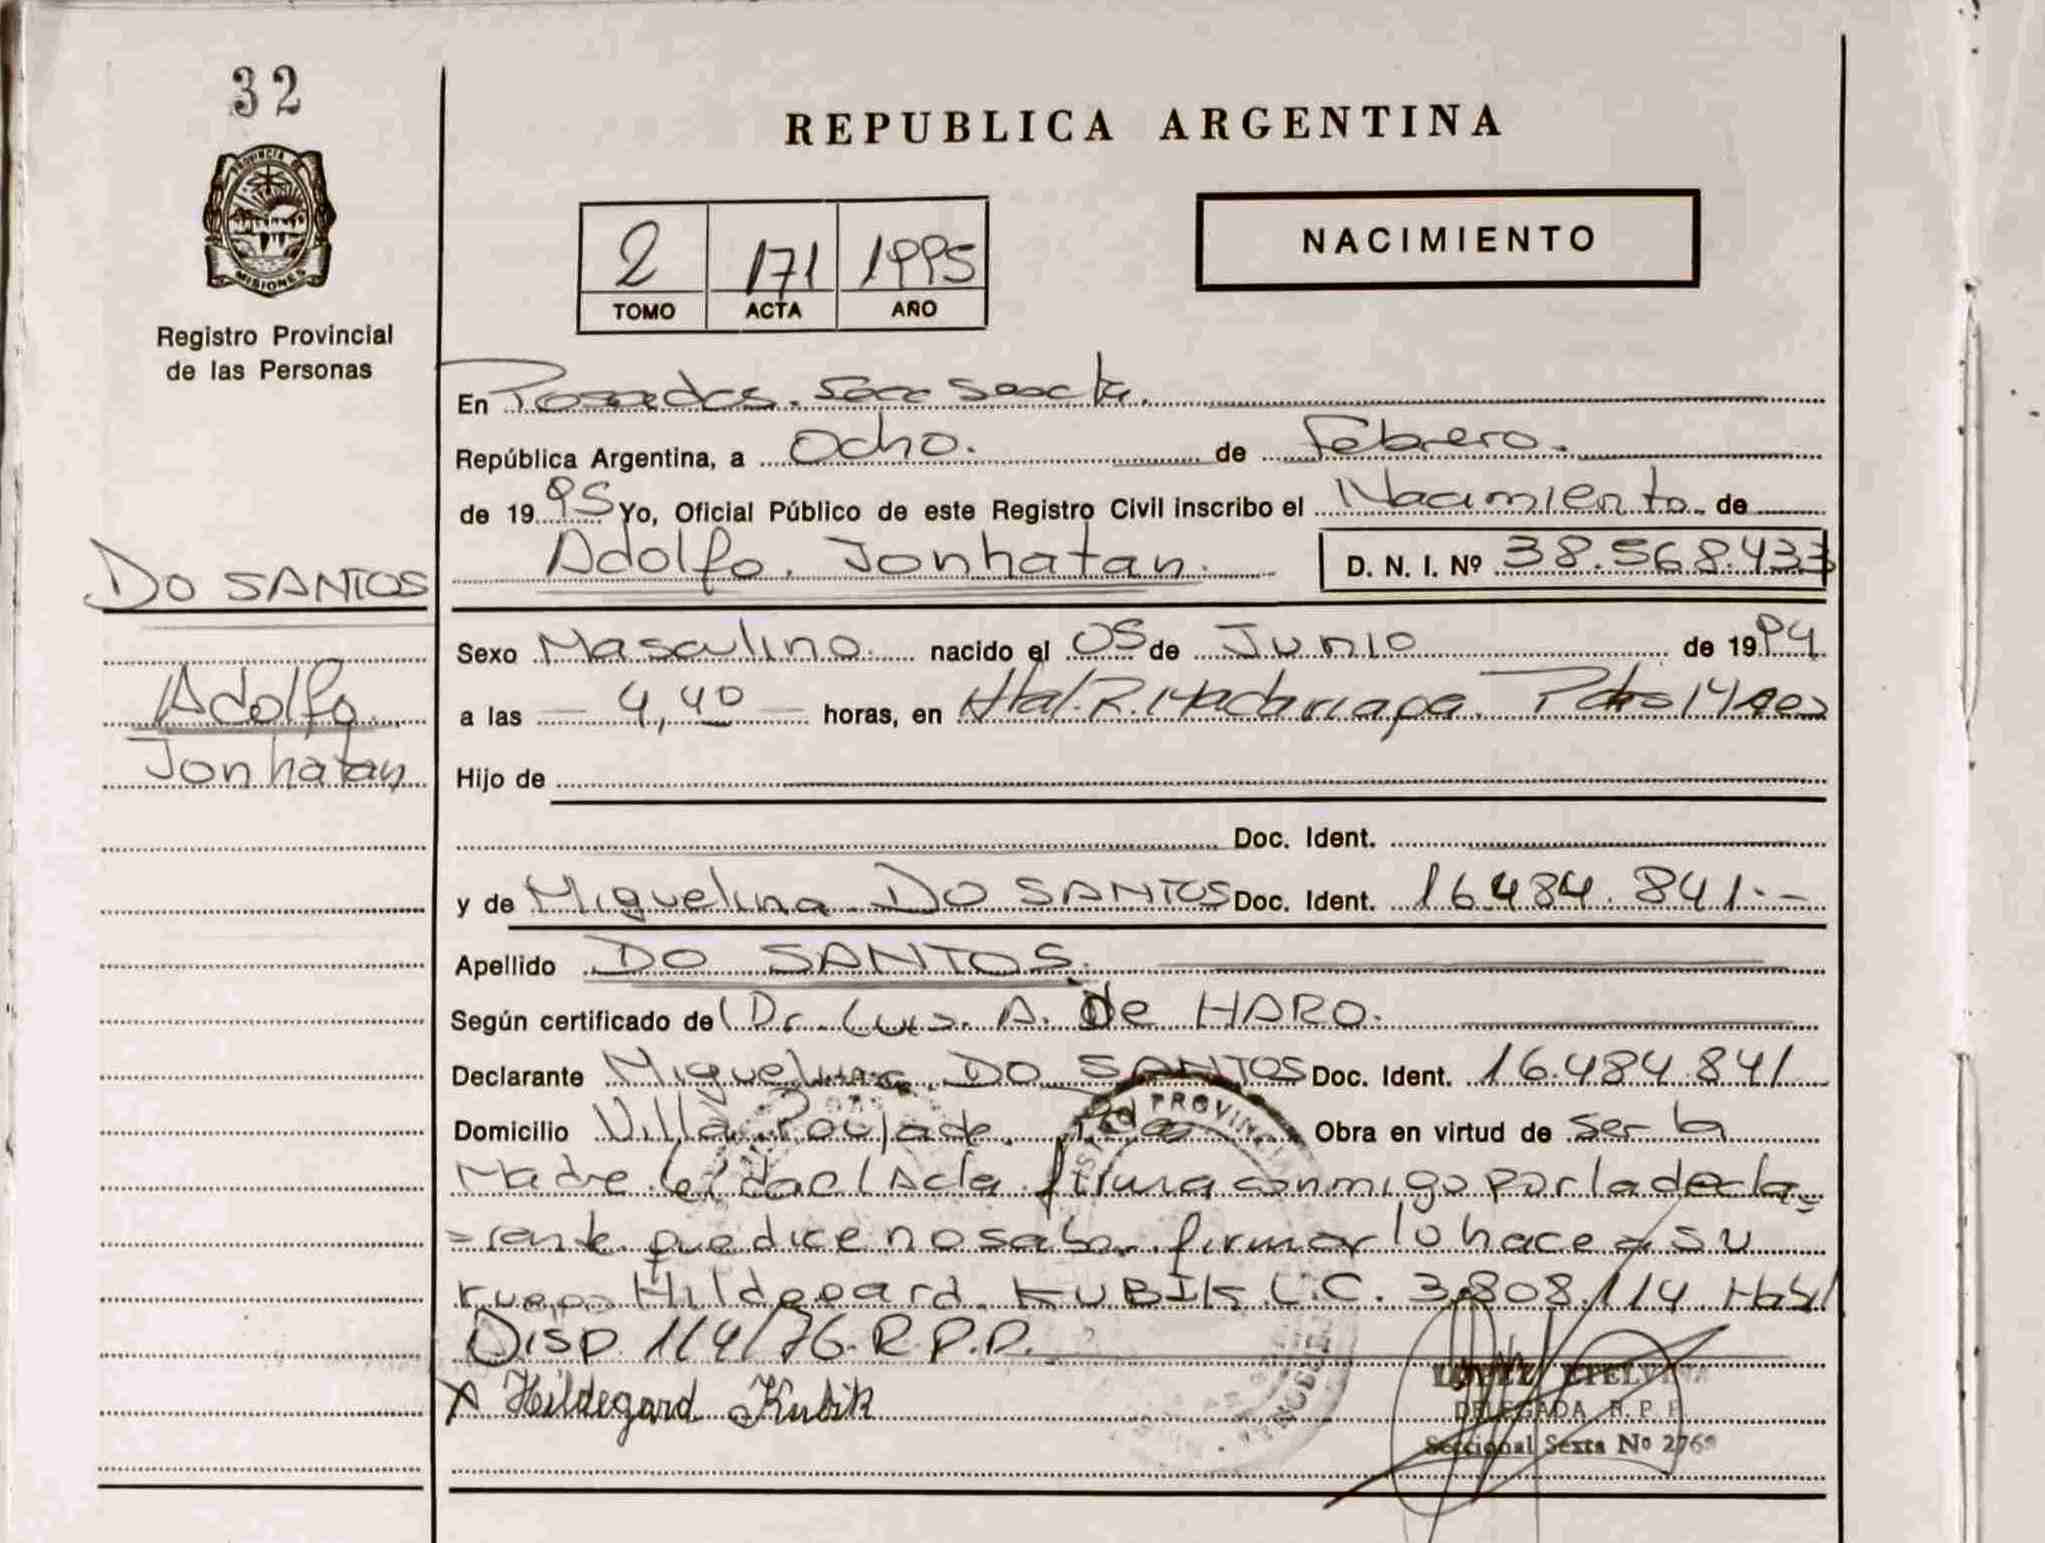 32
PROVINCIA DE
MISIONES
Registro Provincial
de las Personas
REPUBLICA ARGENTINA
2 171 1995
TOMO ACTA AÑO
NACIMIENTO
En Posadas. Secc Sexta.
República Argentina, a Ocho. de Febrero.
de 1995 Yo, Oficial Público de este Registro Civil inscribo el Nacimiento de
Adolfo. Jonhatan. D. N. I. Nº 38.568.433
DO SANTOS
Adolfo
Jonhatan
Sexo Masculino. nacido el 05 de Junio de 1994
a las 4,40 horas, en Htal. R. Madariaga. Pdas Mnes
Hijo de
Doc. Ident.
y de Miguelina DO SANTOS Doc. Ident. 16.484.841.-
Apellido DO SANTOS.
Según certificado del Dr. Luis. A. De HARO.
Declarante Miguelina DO SANTOS Doc. Ident. 16.484.841
Domicilio Villa Poujade. Pdas Obra en virtud de ser la
Madre. Leida el Acta firma conmigo por la decla=
=rante que dice no saber firmar lo hace a su
ruego Hildegard KUBIK L.C. 3.808.114 Habil
Disp. 114/76. R.P.P.
X Hildegard Kubik
PROVINCIAL
LOPEZ ETELVINA
DELEGADA R. P. P.
Seccional Sexta Nº 276